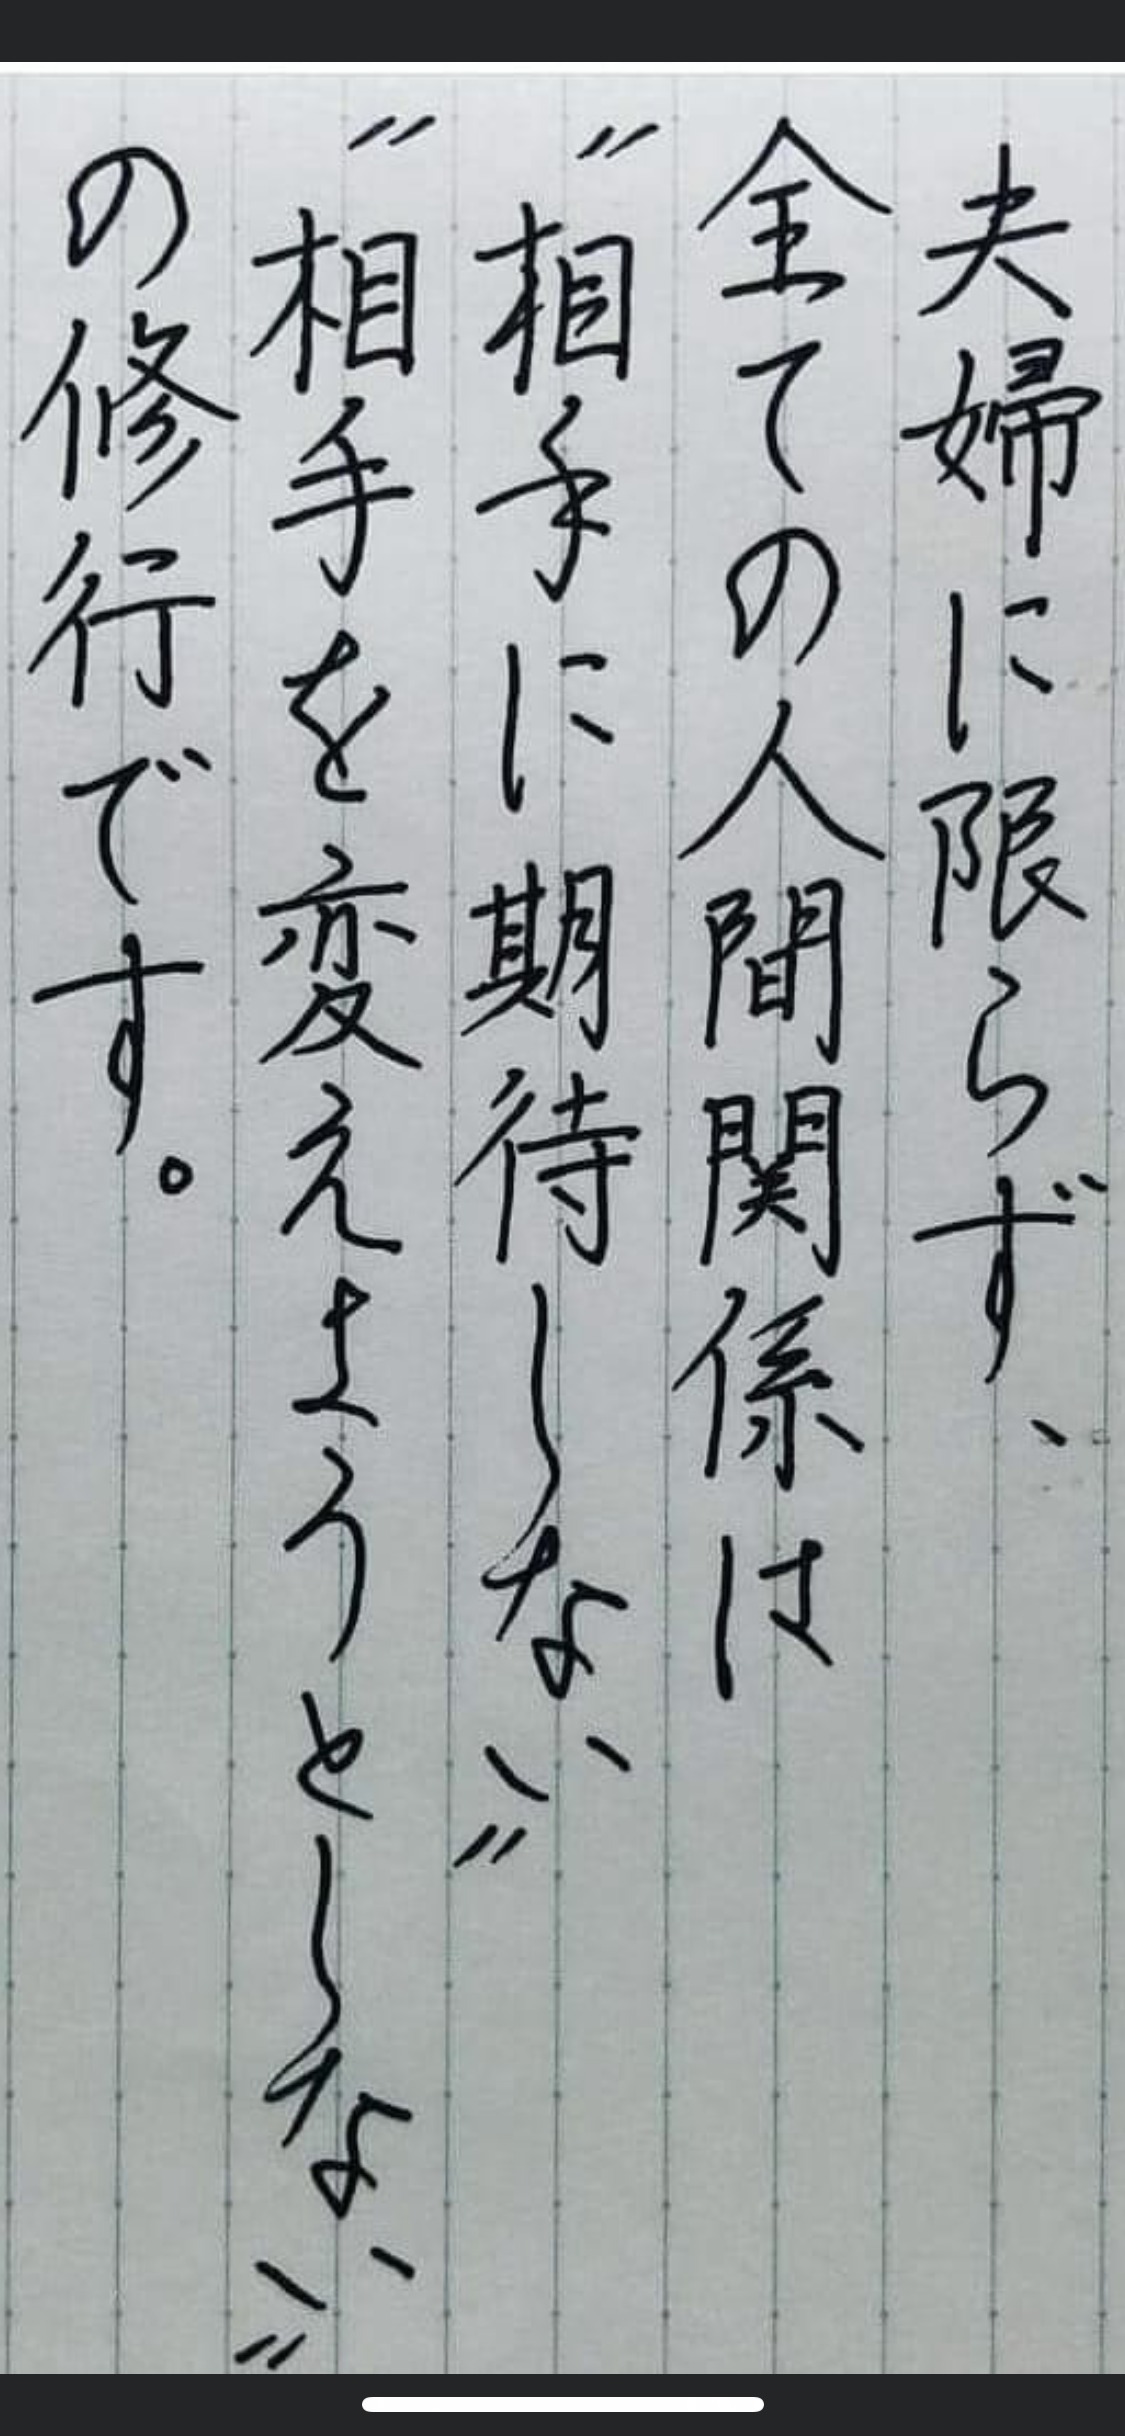 夫婦に限らず、
全ての人間関係は
〃相手に期待しない〃
〃相手を変えようとしない〃
の修行です。